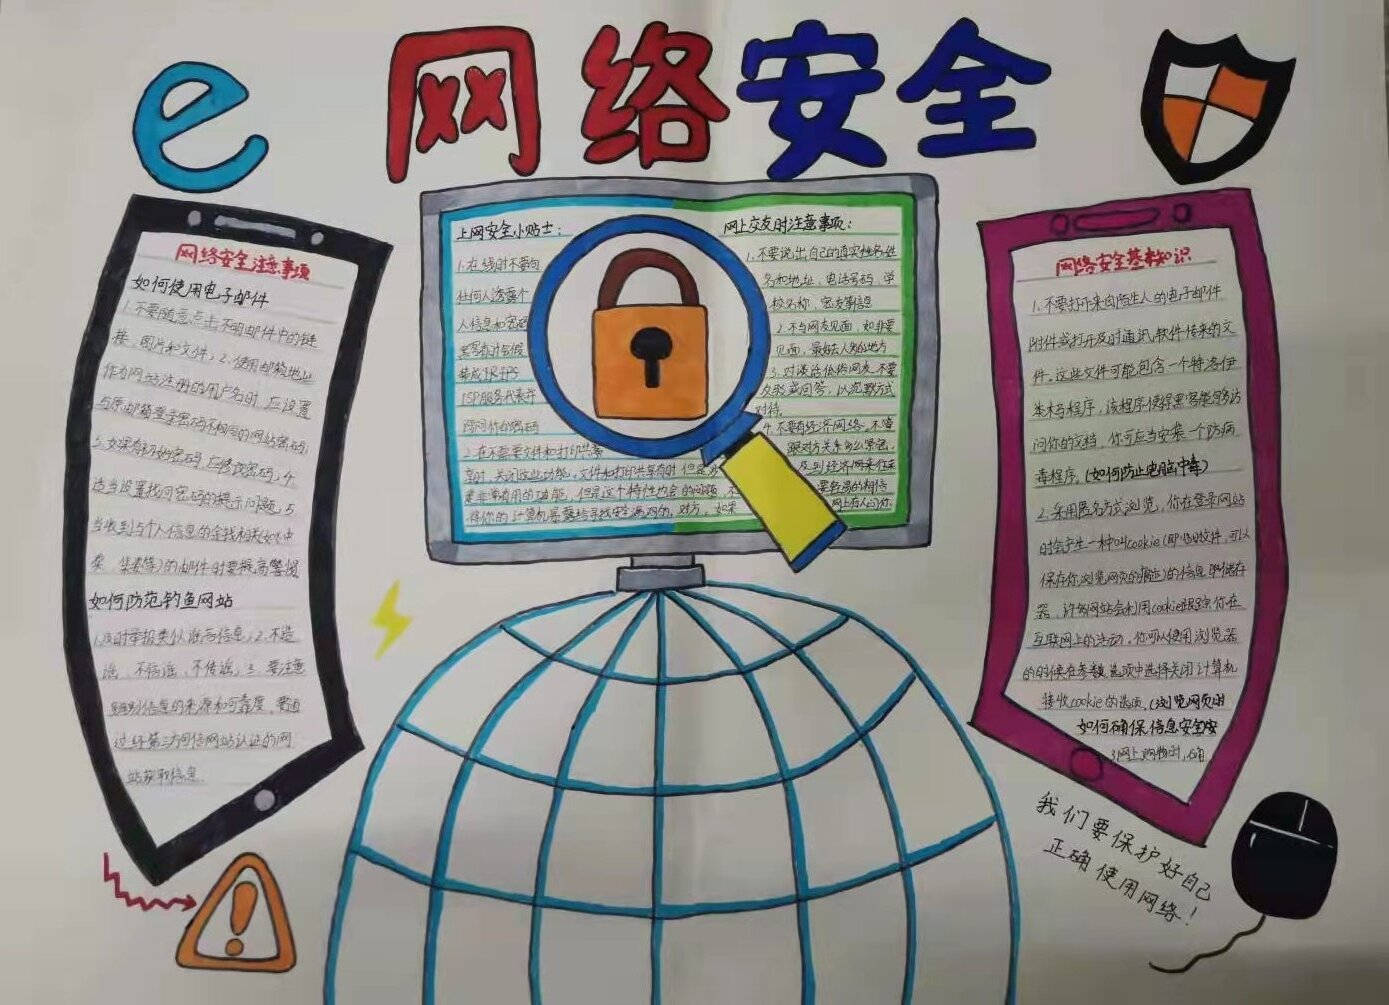 网络安全
网络安全注意事项
如何使用电子邮件
1.不要随意点击不明邮件中的链
接、图片和文件，2.使用邮箱地址
作为网站注册的用户名时，应设置
与原邮箱登录密码不相同的网站密码，
3.如果有初始密码，应修改密码，4.
适当设置找回密码的提示问题，5
当收到与个人信息的金钱相关(如中
奖、集资等)的邮件时要提高警惕
如何防范钓鱼网站
1.及时举报类似谣言信息，2.不造
谣，不信谣，不传谣，3.要注意
辨别信息的来源和可靠度，要通
过经第三方可信网站认证的网
站获取信息
上网安全小贴士：
1.在线时不要向
任何人透露个
人信息和密码
黑客有时会假
装成ISP
ISP服务代表并
询问你的密码
2.在不需要文件和打印共享
时，关闭这些功能，文件和打印共享有时
是非常有用的功能，但是这个特性也会
将你的计算机暴露给寻找安全漏洞的
网上交友时注意事项：
1.不要说出自己的真实姓名
和地址、电话号码、学
校名称、密友等信息
2.不与网友见面，如非要
见面，最好去人多的地方
3.对谈话低俗网友，不要
反驳或回答，以沉默方式
对待，
网络安全基本知识
1.不要打开来自陌生人的电子邮件
附件或打开及时通讯软件传来的文
件。这些文件可能包含一个特洛伊
木马程序，该程序使得黑客能够访
问你的文档，你可应当安装一个防病
毒程序。(如何防止电脑中毒)
2.采用匿名方式浏览，你在登录网站
时会产生一种叫cookie(即临时文件，可以
保存你浏览网页的痕迹)的信息存储
器，许多网站会利用cookie跟踪你在
互联网上的活动，你可以使用浏览器
的时候在参数选项中选择关闭计算机
接收cookie的选项。(浏览网页时
如何确保信息安全
3网上购物时，确
我们要保护好自己
正确使用网络！